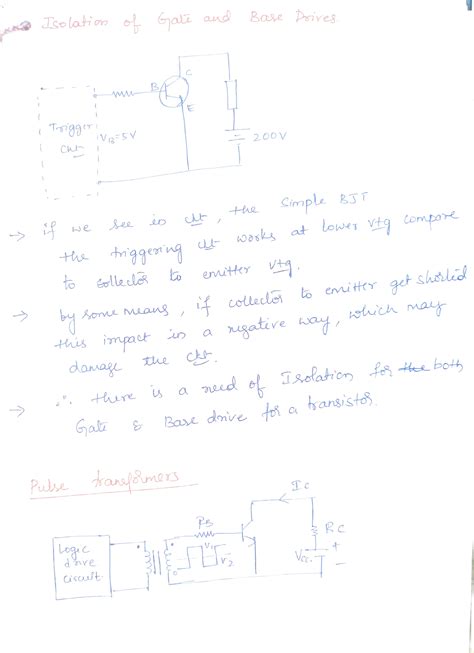 Isolation of Gate and Base Drives
C
B
E
Trigger
ckt
VB=5V
200V
→ if we see in ckt, the simple BJT
the triggering ckt works at lower vtg compare
to collector to emitter vtg.
→ by some means, if collector to emitter get shorted
this impact in a negative way, which may
damage the ckt.
→ ∴ there is a need of Isolation for the both
Gate & Base drive for a transistor.
Pulse transformers
Ic
RB
RC
Logic
drive
circuit
V1
0
V2
Vcc
+
−